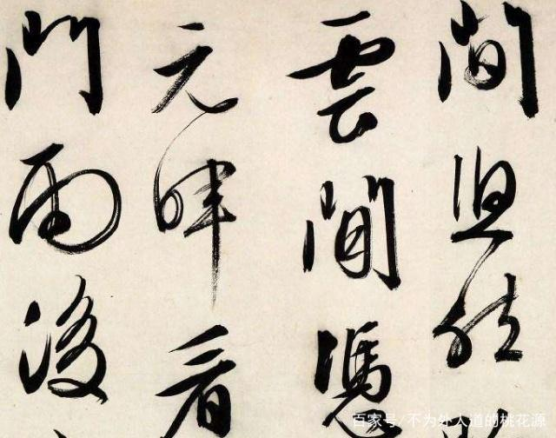 間
雲間憑
元暉看
門雨後
百家号/不为外人道的桃花源